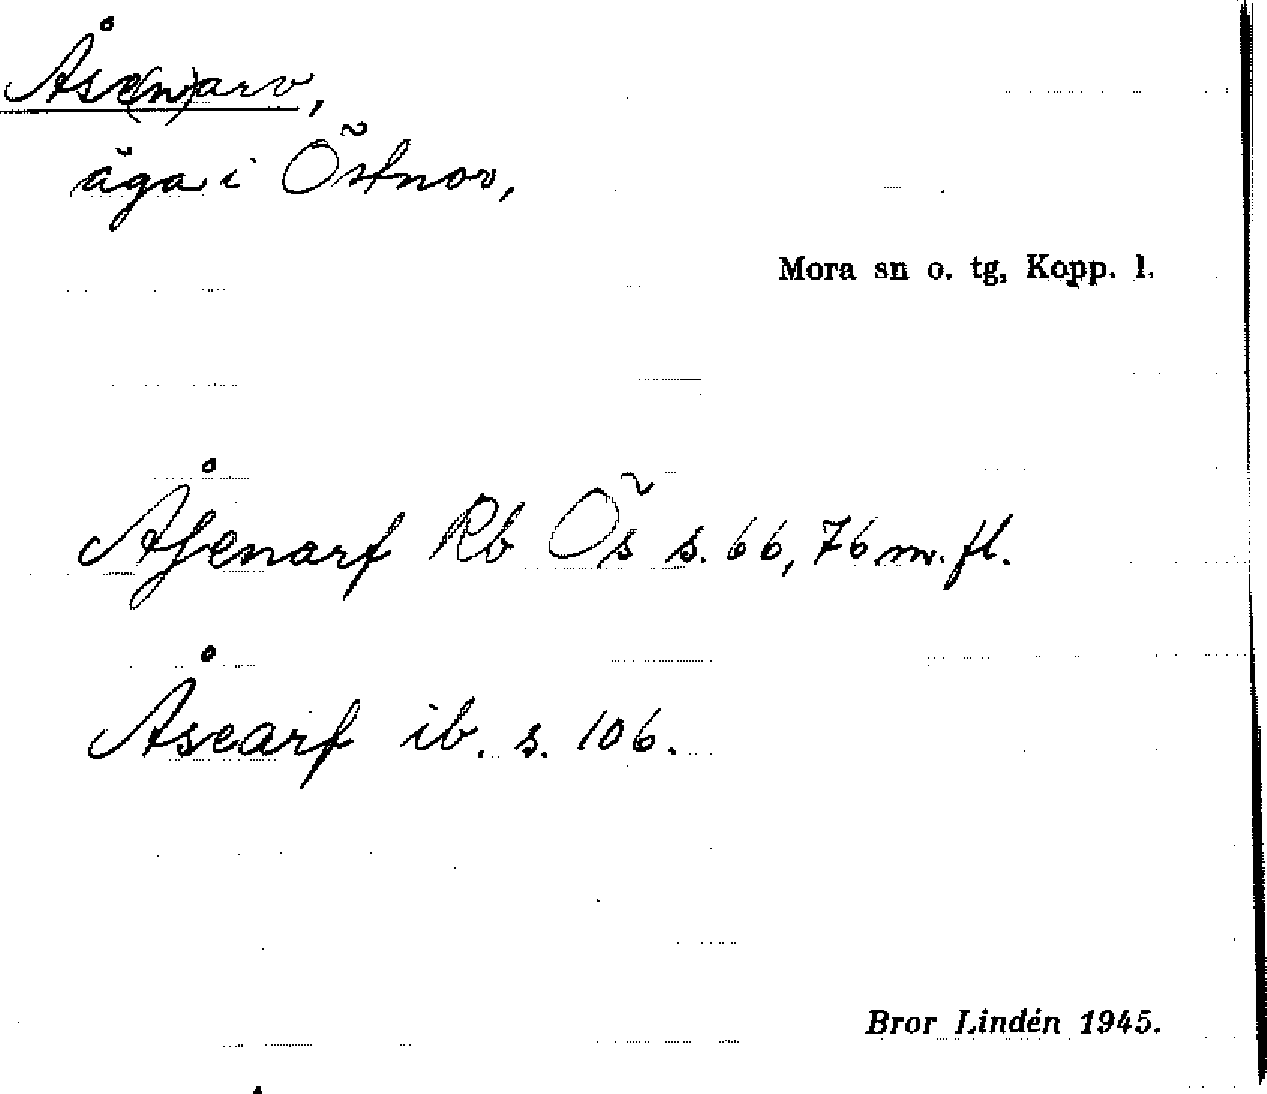 Åse(n)arv,
äga i Östnor,
Mora sn o. tg, Kopp. l.
Åſenarf Rb Ös s. 66, 76 m. fl.
Åsearf ib. s. 106.
Bror Lindén 1945.